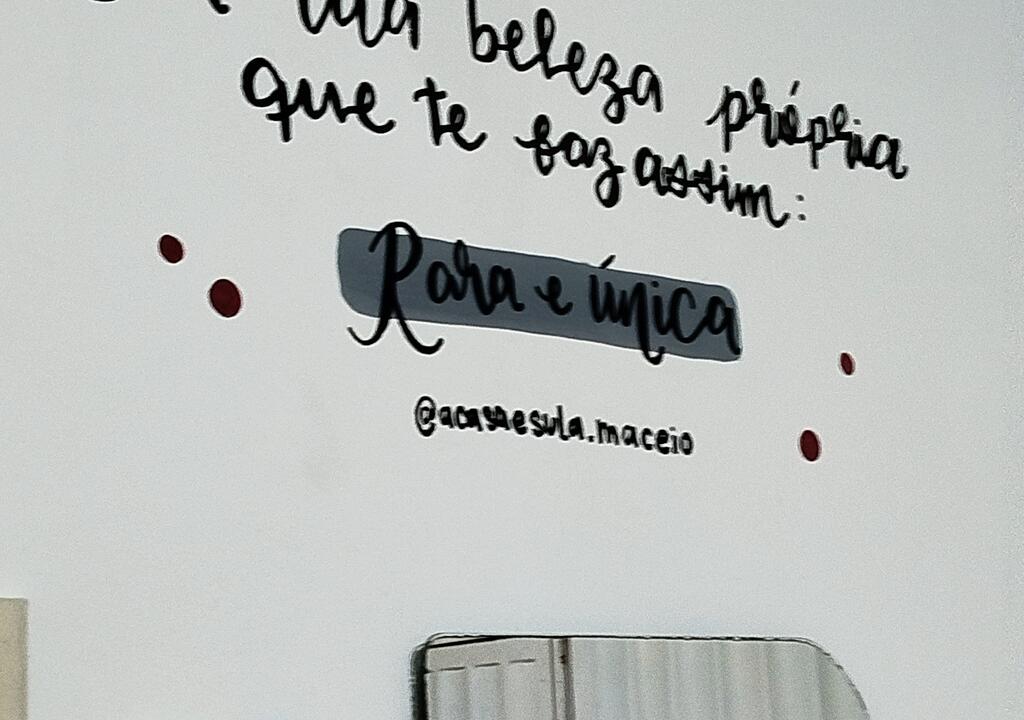 tua beleza própria
que te faz assim:
Rara e única
@acasaesula.maceio